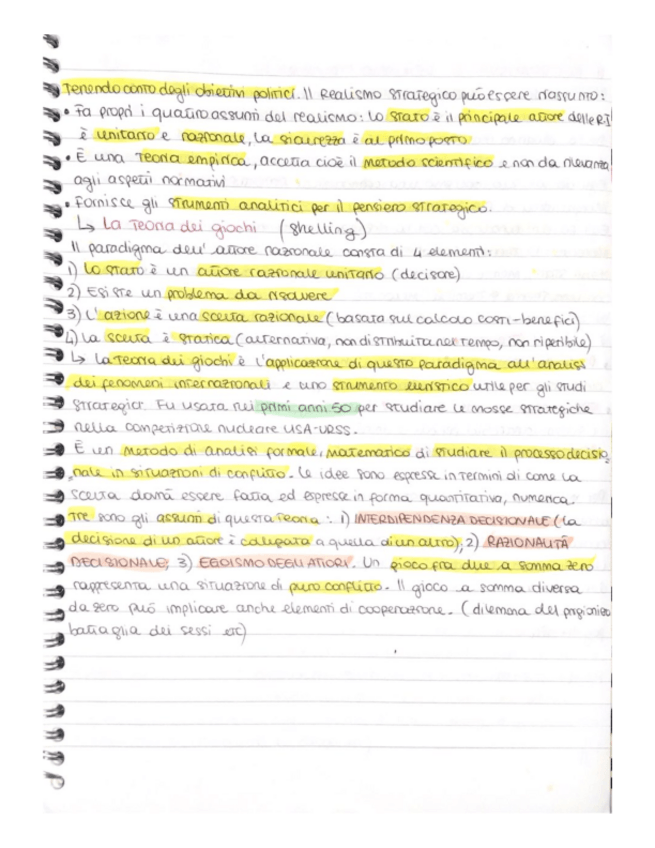 Tenendo conto degli obiettivi politici. Il Realismo strategico può essere riassunto:
• Fa propri i quattro assunti del realismo: lo stato è il principale attore delle RI
è unitario e razionale, la sicurezza è al primo posto
• È una teoria empirica, accetta cioè il metodo scientifico e non da rilevanza
agli aspetti normativi
• Fornisce gli strumenti analitici per il pensiero strategico.
↳ La Teoria dei giochi (Shelling)
Il paradigma dell'attore razionale consta di 4 elementi:
1) Lo stato è un attore razionale unitario (decisore)
2) Esiste un problema da risolvere
3) L'azione è una scelta razionale (basata sul calcolo costi-benefici)
4) La scelta è statica (alternativa, non distribuita nel tempo, non ripetibile)
↳ La Teoria dei giochi è l'applicazione di questo paradigma all'analisi
dei fenomeni internazionali e uno strumento euristico utile per gli studi
strategici. Fu usata nei primi anni 50 per studiare le mosse strategiche
nella competizione nucleare USA-URSS.
È un metodo di analisi formale, matematico di studiare il processo decisio
nale in situazioni di conflitto. Le idee sono espresse in termini di come la
scelta dovrà essere fatta ed espresse in forma quantitativa, numerica.
Tre sono gli assunti di questa teoria: 1) INTERDIPENDENZA DECISIONALE (la
decisione di un attore è collegata a quella di un altro), 2) RAZIONALITÀ
DECISIONALE, 3) EGOISMO DEGLI ATTORI. Un gioco fra due a somma zero
rappresenta una situazione di puro conflitto. Il gioco a somma diversa
da zero può implicare anche elementi di cooperazione. (dilemma del prigioniero
battaglia dei sessi etc)